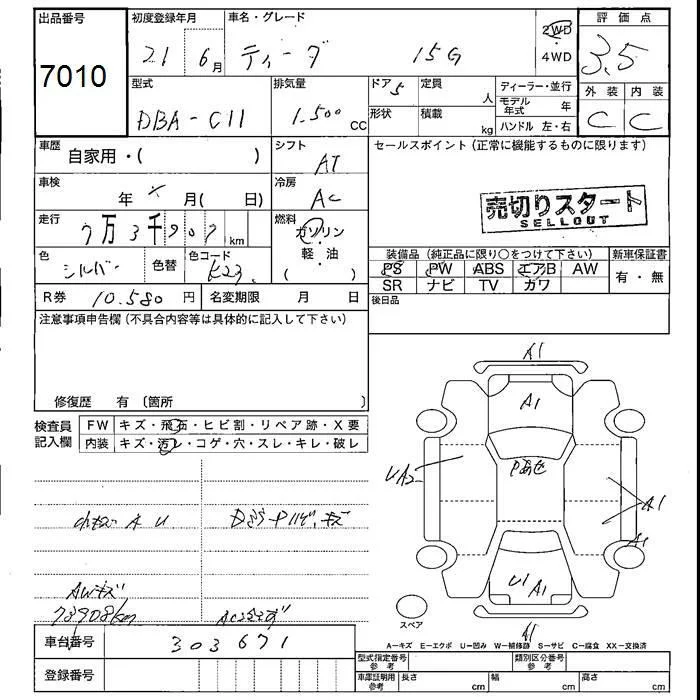 出品番号 初度登録年月 車名・グレード 評価点
7010 21 6月 ティーダ 15G 2WD 4WD 3.5
型式 排気量 ドア 5 定員 人 ディーラー・並行 外装 内装
DBA-C11 1.500 cc 形状 積載 kg モデル年式 年 C C
ハンドル 左・右
車歴 自家用・( ) シフト AT セールスポイント(正常に機能するものに限ります)
車検 年 月( 日) 冷房 AC
売切りスタート
SELLOUT
走行 7万3千907km 燃料 ガソリン・軽油( )
色 シルバー 色替 色コード K23 装備品(純正品に限り○をつけて下さい) 新車保証書
PS PW ABS エアB AW 有・無
SR ナビ TV ガワ
R券 10.580円 名変期限 月 日 後日品
注意事項申告欄(不具合内容等は具体的に記入して下さい)
修復歴 有 〔箇所 〕
検査員記入欄 FW キズ・飛石・ヒビ割・リペア跡・X要
内装 キズ・汚レ・コゲ・穴・スレ・キレ・破レ
A1
A1
UA2
A1
A1
U1 A1
A1
小キズ A U
AWキズ
73908km
スペア
A=キズ E=エクボ U=凹み W=補修跡 S=サビ C=腐食 XX=交換済
車台番号 303671
型式指定番号 参考 類別区分番号 参考
登録番号 車庫証明用 参考 長さ cm 幅 cm 高さ cm